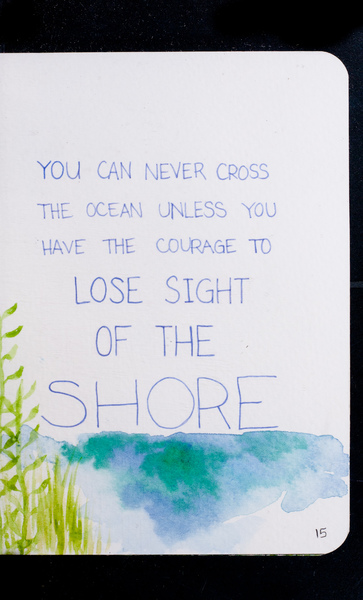 YOU CAN NEVER CROSS
THE OCEAN UNLESS YOU
HAVE THE COURAGE TO
LOSE SIGHT
OF THE
SHORE
15